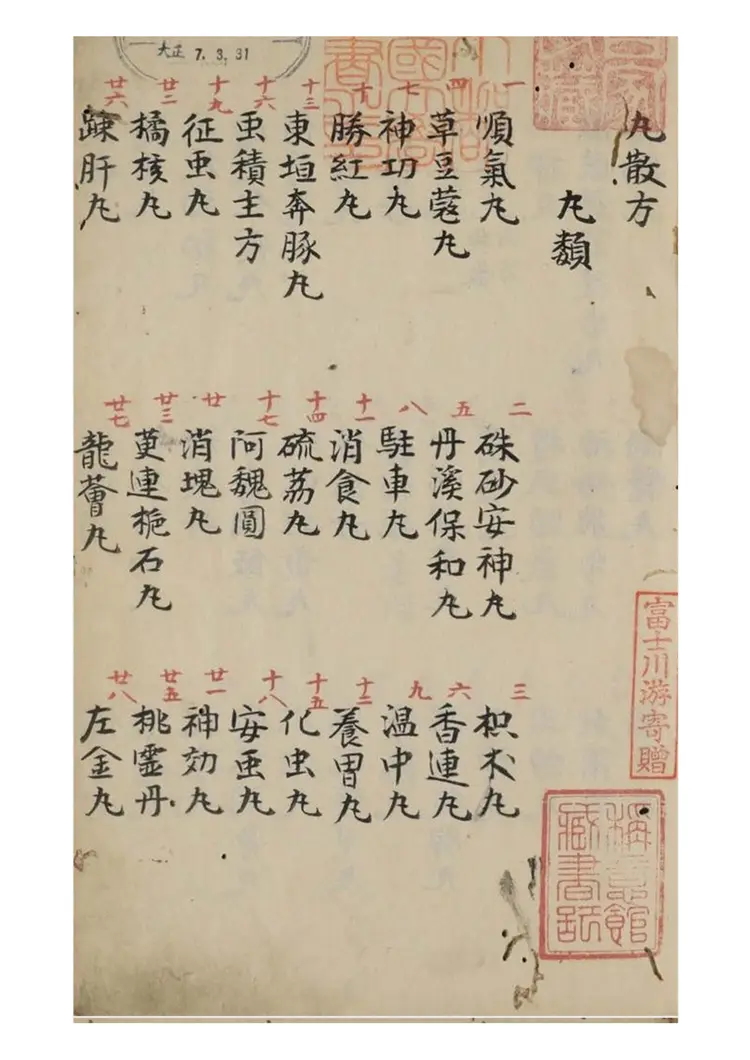 丸散方
丸類
一 順氣丸
二 硃砂安神丸
三 枳朮丸
四 草豆蔻丸
五 丹溪保和丸
六 香連丸
七 神功丸
八 駐車丸
九 温中丸
十 勝紅丸
十一 消食丸
十二 養胃丸
十三 東垣奔豚丸
十四 硫荔丸
十五 化虫丸
十六 䖝積主方
十七 阿魏圓
十八 安䖝丸
十九 征䖝丸
廿 消塊丸
廿一 神効丸
廿二 橘核丸
廿三 萸連梔石丸
廿五 桃霊丹
廿六 踈肝丸
廿七 龍薈丸
廿八 左金丸
大正 7.3.31
富士川游寄贈
稱意館
藏書記